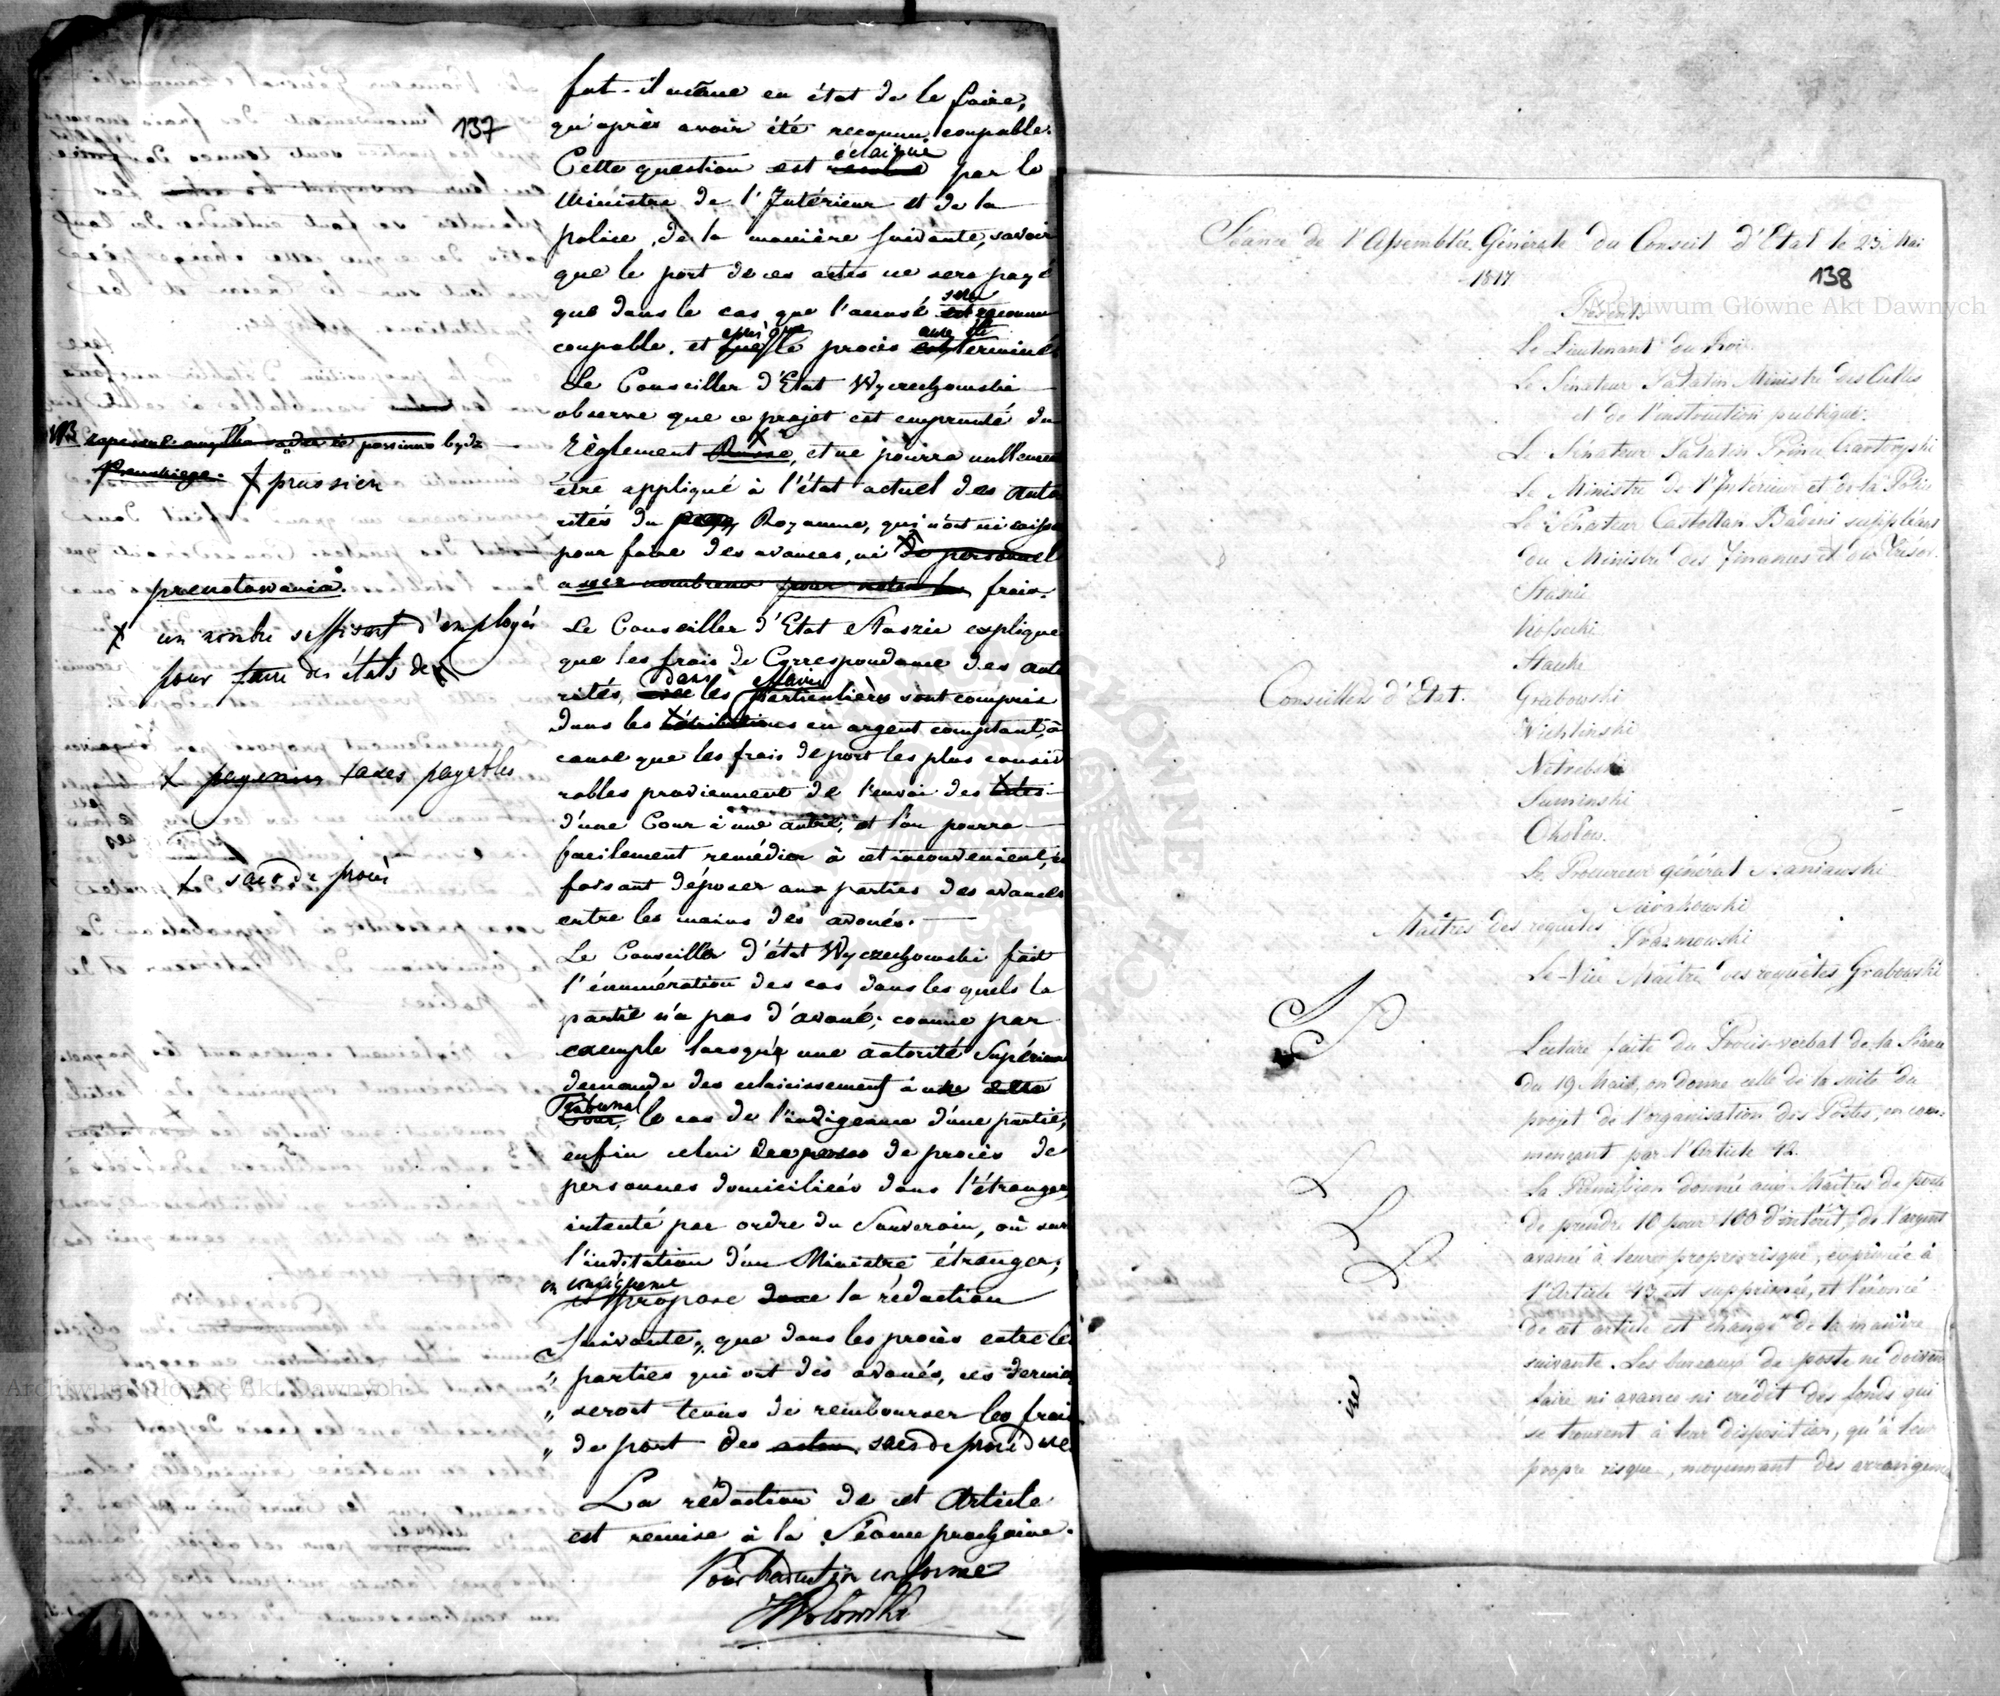 137
fut-il même en état de le faire,
qu'après avoir été reconnu coupable.
éclaircie
Cette question est resolue par le
Ministre de l'Intérieur et de la
police, de la manière suivante, savoir
que le port de ces actes ne sera payé
sera
que dans le cas que l'accusé est reconnu
coupable, et que le procès terminé
Le Conseiller d'Etat Wyczechowski
observe que ce projet est emprunté du
Règlement Russe, et ne pourra nullement
être appliqué à l'état actuel des auto
rités du pays, Royaume, qui n'ont ni caisse
pour faire des avances, ni de personnel
assez nombreux pour noter les frais.
Le Conseiller d'Etat Staszic explique
que les frais de Correspondance des auto
dans affaires
rités, les particulières sont compris
dans les rétributions en argent comptant, à
cause que les frais de port les plus consid
rables proviennent de l'envoi des actes
d'une Cour à une autre, et l'on pourra
facilement remédier à cet inconvenient, en
faisant déposer aux parties des avances
entre les mains des avoués.
Le Conseiller d'état Wyczechowski fait
l'énumération des cas dans les quels la
partie n'a pas d'avoué; comme par
exemple lorsqu'une autorité Supérieure
demande des eclaircissemens à une
Tribunal
Cour, le cas de l'indigence d'une partie,
enfin celui de procès de
personnes domiciliées dans l'étranger
intenté par ordre du Souverain, où sur
l'invitation d'un Ministre étranger;
en conséquence
il propose donc la rédaction
suivante „ que dans les procès entre les
„ parties qui ont des avoués, ces dernier
„ seront tenus de rembourser les frais
„ de port des actes, sacs de procédure
La rédaction de cet Article
est remise à la Séance prochaine.
Pour traduction conforme
HWołowski
NB
bydz
Pruskiego. prussien
prenotowania.
un nombre suffisant d'employés
pour faire des états de
taxes payables
sacs de procès
Séance de l'Assemblée Générale du Conseil d'Etat le 23. Mai
1817
138
Présents
Le Lieutenant du Roi
Le Sénateur Palatin Ministre des Cultes
et de l'instruction publique.
Le Sénateur Palatin Prince Czartoryski
Le Ministre de l'Intérieur et de la Police
Le Sénateur Castellan Badeni suppléant
du Ministre des Finances et du Trésor.
Staszic
Kossecki
Stanke
Conseillers d'Etat. Grabowski
Wichlinski
Netrebski
Suminski
Okolow.
Le Procureur général Staniawski
Maîtres des requêtes
Prazmowski
Le Vice Maître des requêtes, Grabowski
Lecture faite du Procès-verbal de la Séance
du 19 Mai, on donne celle de la suite du
projet de l'organisation des Postes, en com-
mençant par l'Article 42.
La Permission donnée aux Maîtres de poste
de prendre 10 pour 100 d'intérêt, de l'argent
avancé à leurs propres risque, exprimée à
l'Article 43 est supprimée, et l'énoncé
de cet article est changé de la manière
suivante. Les bureaux de poste ne doivent
faire ni avance ni crédit des fonds qui
se trouvent à leur disposition, qu'à leur
propre risque, moyennant des arrangemen
Archiwum Główne Akt Dawnych
Archiwum Główne Akt Dawnych